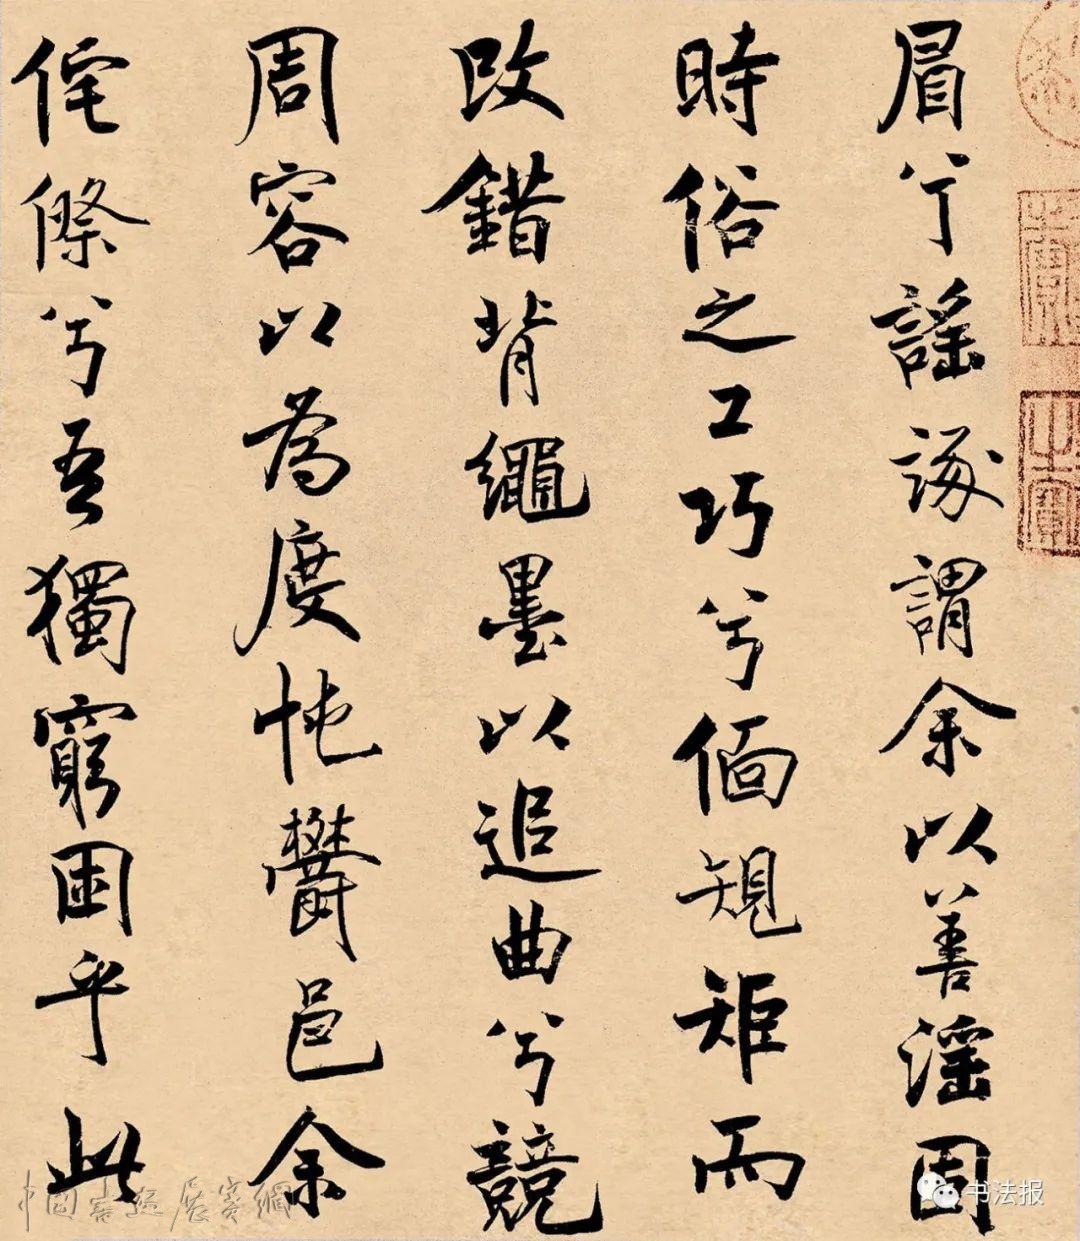 眉兮謡諑謂余以善淫固
時俗之工巧兮偭規矩而
改錯背繩墨以追曲兮競
周容以為度忳鬱邑余
侘傺兮吾獨窮困乎此
中國書法展賽網
书法报